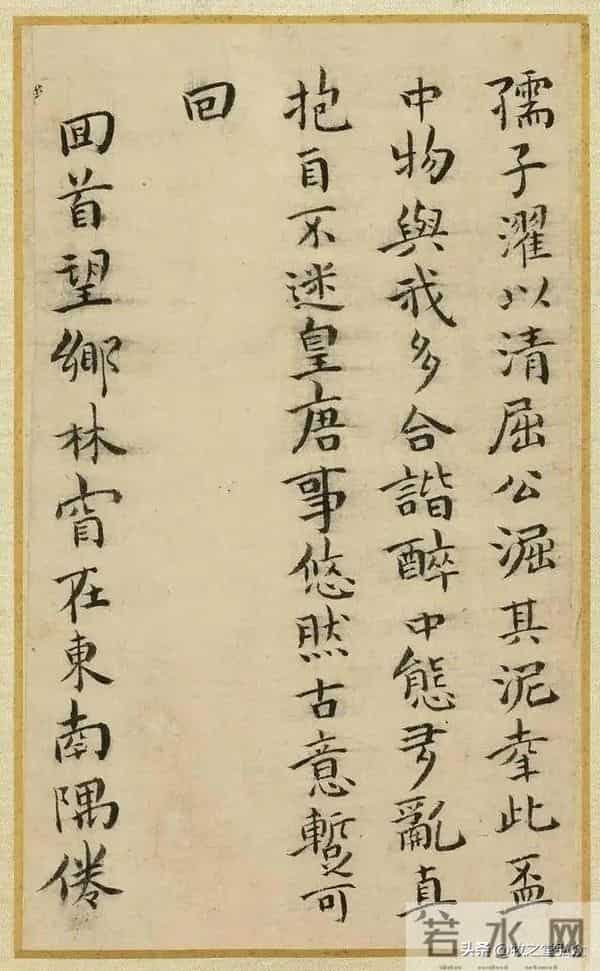 孺子濯以清屈公淈其泥幸此盃
中物與我多合諧醉中態亂真
抱自不迷皇唐事悠然古意蹔可
回
回首望鄉林在東南隅倦
若水网
头条